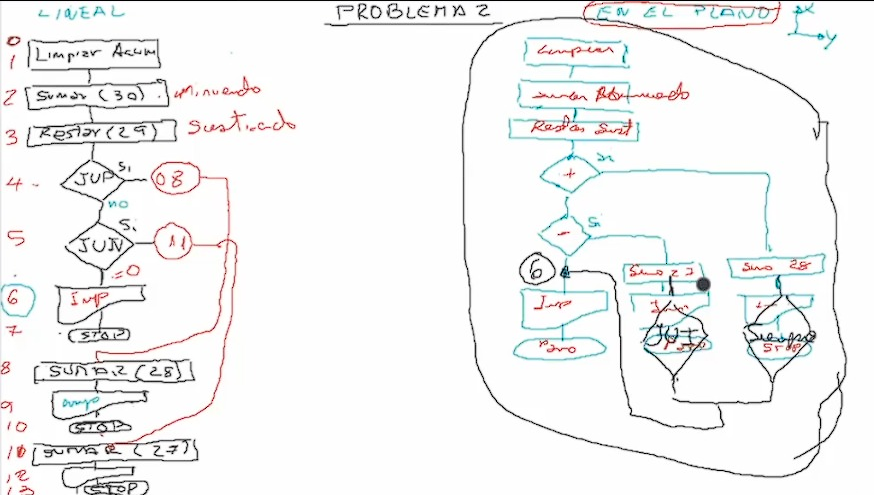 LINEAL
PROBLEMA 2
EN EL PLANO
X
Y
0
1 Limpiar Acum
2 Sumar (30) Minuendo
3 Restar (29) Sustraendo
4 JUP Si 08
no
5 JUN Si 11
=0
6 Imp
7 STOP
8 SUMAR (28)
9
10 STOP
11 SUMAR (27)
12
13 STOP
Limpiar
Restar Sust
+
-
Si
6
Imp
Paro
Suma 27
JUI
Suma 28
Siempre
STOP